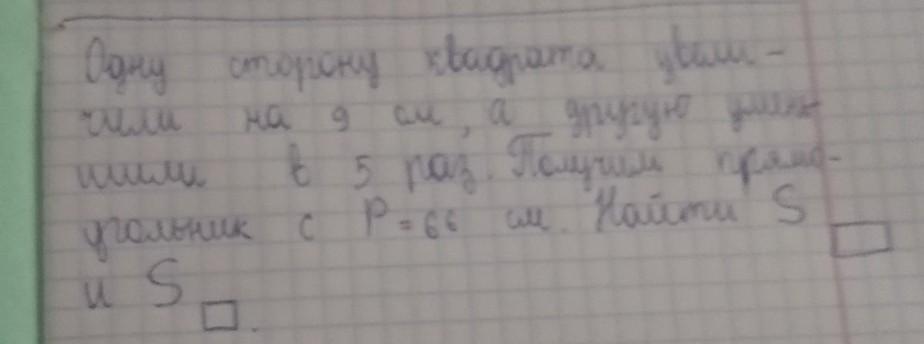 Одну сторону квадрата увели-
чили на 9 см, а другую умень
шили в 5 раз. Получили прямо-
угольник с P = 66 см. Найти S
и S